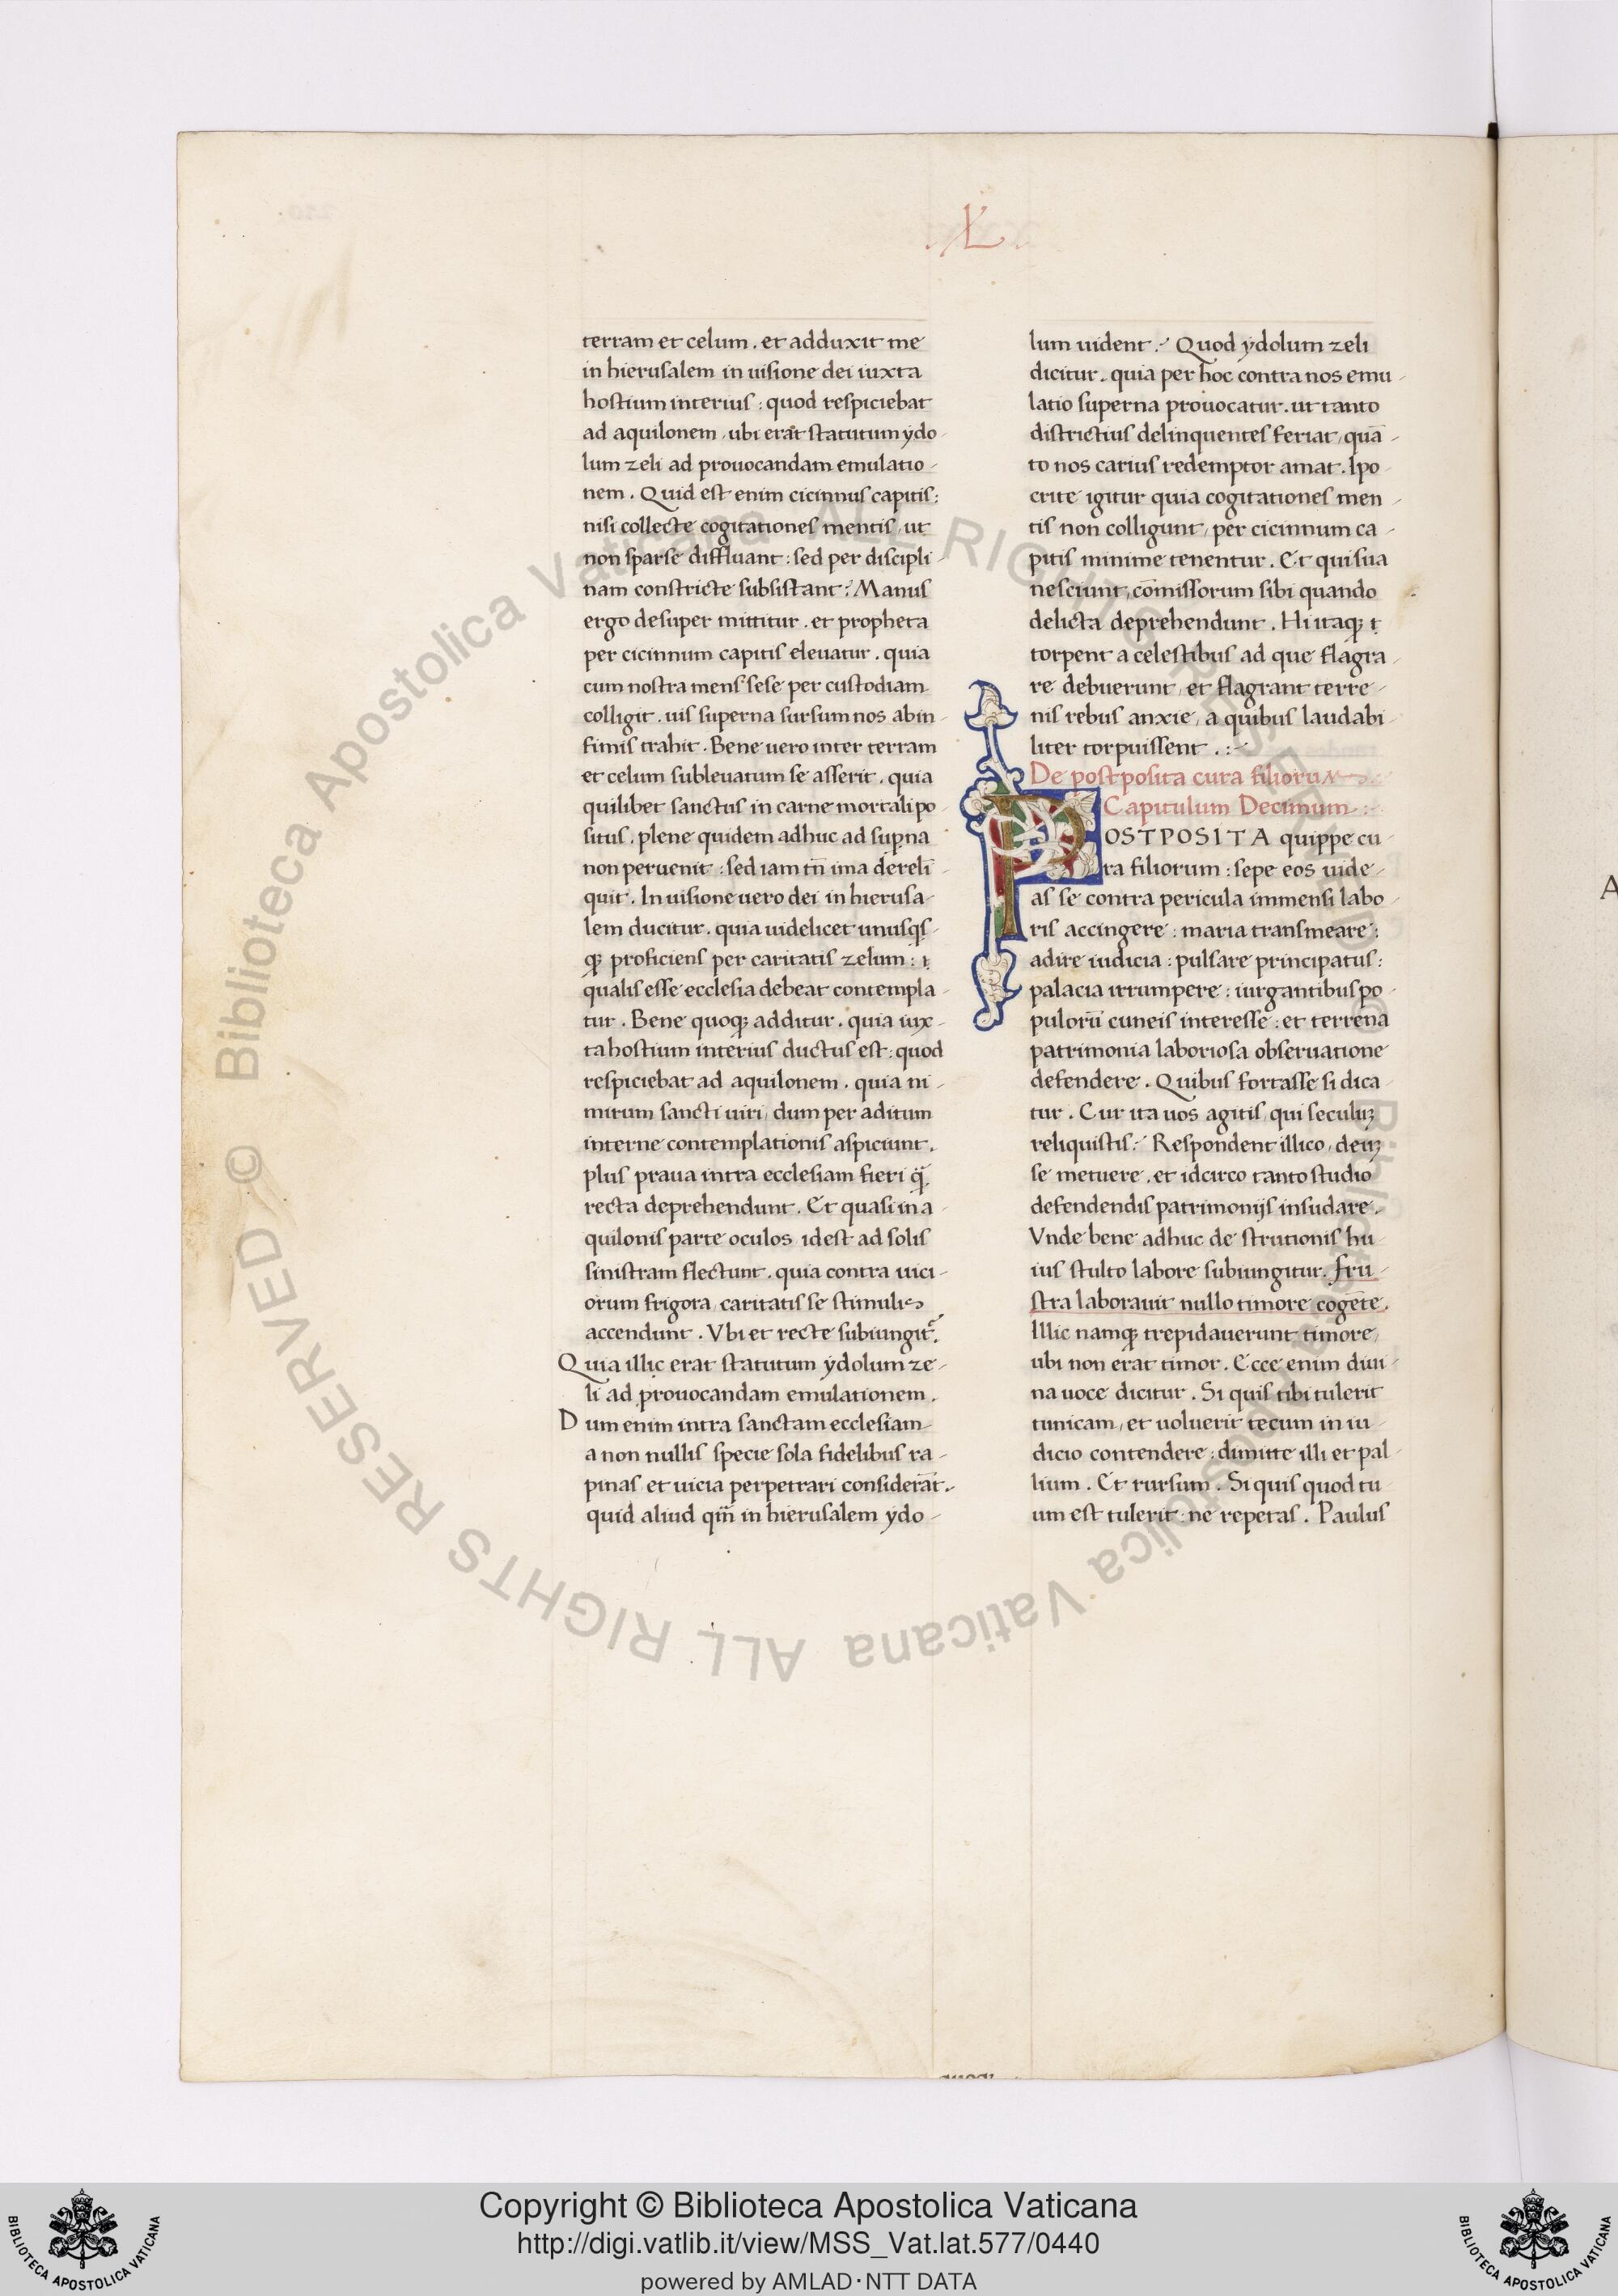 .XL.
terram et celum . et adduxit me
in hierusalem in uisione dei iuxta
hostium interius : quod respiciebat
ad aquilonem , ubi erat statutum ydo-
lum zeli ad prouocandam emulatio-
nem . Quid est enim cicinnus capitis :
nisi collecte cogitationes mentis , ut
non sparse diffluant : sed per discipli-
nam constricte subsistant ? Manus
ergo desuper mittitur . et propheta
per cicinnum capitis eleuatur . quia
cum nostra mens sese per custodiam
colligit . uis superna sursum nos ab in-
fimis trahit . Bene uero inter terram
et celum subleuatum se asserit . quia
quilibet sanctus in carne mortali po
situs , plene quidem adhuc ad sup̱na
non peruenit : sed iam tñ ima dereli-
quit . In uisione uero dei in hierusa-
lem ducitur . quia uidelicet unusqs-
qꝫ proficiens per caritatis zelum : ⁊
qualis esse ecclesia debeat contempla-
tur . Bene quoqꝫ additur . quia iux-
ta hostium interius ductus est : quod
respiciebat ad aquilonem . quia ni-
mirum sancti uiri , dum per aditum
interne contemplationis aspiciunt .
plus praua intra ecclesiam fieri q̃
recta deprehendunt . Et quasi in a-
quilonis parte oculos idest ad solis
sinistram flectunt . quia contra uici-
orum frigora , caritatis se stimulis
accendunt . Vbi et recte subiungit᷑ .
Quia illic erat statutum ydolum ze-
li ad prouocandam emulationem .
Dum enim intra sanctam ecclesiam
a non nullis specie sola fidelibus ra-
pinas et uicia perpetrari considerāt .
quid aliud qm̃ in hierusalem ydo-
lum uident ? Quod ydolum zeli
dicitur . quia per hoc contra nos emu-
latio superna prouocatur . ut tanto
districtius delinquentes feriat , quā-
to nos carius redemptor amat . Ipo-
crite igitur quia cogitationes men-
tis non colligunt , per cicinnum ca-
pitis minime tenentur . Et qui sua
nesciunt , cōmissorum sibi quando
delicta deprehendunt . Hi itaqꝫ ⁊
torpent a celestibus ad que flagra-
re debuerunt , et flagrant terre-
nis rebus anxie , a quibus laudabi-
liter torpuissent . :-
De postposita cura filiorum .
Capitulum Decimum :
POSTPOSITA quippe cu-
ra filiorum : sepe eos uide-
as se contra pericula immensi labo-
ris accingere : maria transmeare :
adire iudicia : pulsare principatus :
palacia irrumpere : iurgantibus po-
pulorū cuneis interesse : et terrena
patrimonia laboriosa obseruatione
defendere . Quibus fortasse si dica-
tur . Cur ita uos agitis , qui seculuꝫ
reliquistis ? Respondent illico , deuꝫ
se metuere , et idcirco tanto studio
defendendis patrimonijs insudare .
Vnde bene adhuc de strutionis hu-
ius stulto labore subiungitur . fru-
stra laborauit nullo timore cogēte .
Illic namqꝫ trepidauerunt timore ,
ubi non erat timor . Ecce enim diui-
na uoce dicitur . Si quis tibi tulerit
tunicam , et uoluerit tecum in iu-
dicio contendere : dimitte illi et pal-
lium . Et rursum . Si quis quod tu
um est tulerit : ne repetas . Paulus
© Biblioteca Apostolica Vaticana ALL RIGHTS RESERVED
© Biblioteca Apostolica Vaticana ALL RIGHTS RESERVED
Copyright © Biblioteca Apostolica Vaticana
http://digi.vatlib.it/view/MSS_Vat.lat.577/0440
powered by AMLAD·NTT DATA
BIBLIOTECA APOSTOLICA VATICANA
BIBLIOTECA APOSTOLICA VATICANA